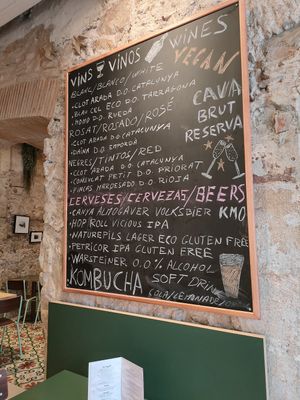 VINS VINOS WINES
VEGAN
BLANC/BLANCO/WHITE
• CLOT ARADA D.O. CATALUNYA
• BLAU CEL ECO D.O. TARRAGONA
• MOMO D.O. RUEDA
ROSAT/ROSADO/ROSÉ
• CLOT ARADA D.O. CATALUNYA
• DAINA D.O. EMPORDA
NEGRES/TINTOS/RED
• CLOT ARADA D.O. CATALUNYA
PETIT D.O. PRIORAT
• FINCAS D.O. RIOJA
CAVA
BRUT
RESERVA
CERVESES/CERVEZAS/BEERS
• CANYA ALMOGÀVER VOLKSBIER KM0
• HOP ROLL VICIOUS IPA
• NATUREPILS LAGER ECO GLUTEN FREE
• PETRICOR IPA GLUTEN FREE
• WARSTEINER 0,0% ALCOHOL
KOMBUCHA
SOFT DRINK
COLA/LEMONADE